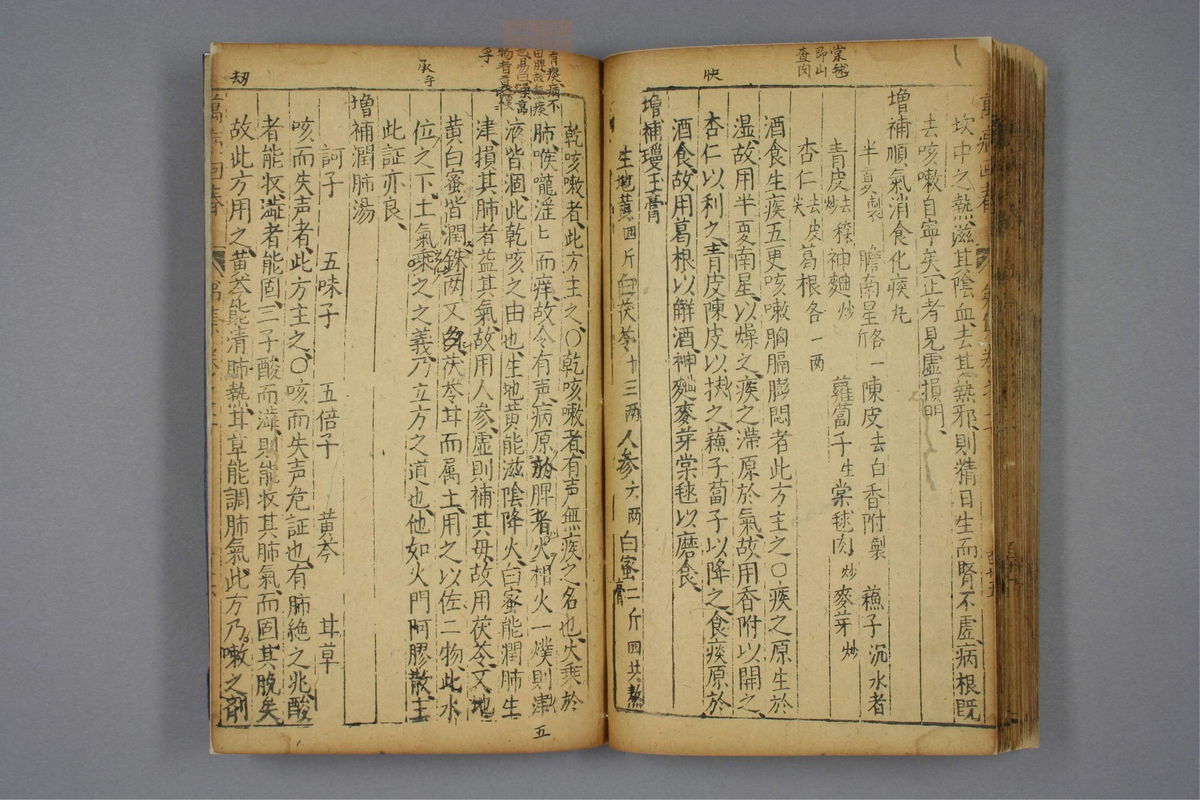 棠毬
即山
查肉
快
坎中之熱滋其陰血去其熱邪則精日生而腎不虛病根既
去咳嗽自寧矣正考見虛損門
增補順氣消食化痰丸
半夏製 膽南星各一 陳皮去白 香附製 蘓子沉水者
青皮去穰炒 神麯炒 蘿蔔子生 棠毬肉炒 麥芽炒
杏仁去皮尖 葛根各一兩
酒食生痰五更咳嗽胸膈膨悶者此方主之〇痰之原生於
湿故用半夏南星以燥之痰之滞原於氣故用香附以開之
杏仁以利之青皮陳皮以快之蘓子蔔子以降之食痰原於
酒食故用葛根以解酒神麯麥芽棠毬以磨食
增補瓊玉膏
生地黄四斤 白茯苓十三兩 人参六兩 白蜜二斤四共熬膏
乾咳嗽者此方主之〇乾咳嗽者有声無痰之名也火乗於
肺喉嚨淫淫而痒故令有声病原於脾者火相火一熯則津
液皆涸此乾咳之由也生地黄能滋陰降火白蜜能潤肺生
津損其肺者益其氣故用人参虛則補其母故用茯苓又地
黄白蜜皆潤銖两又多茯苓甘而属土用之以佐二物此水
位之下土氣乗之之義乃立方之道也他如火門阿膠散主
此証亦良
增補潤肺湯
訶子 五味子 五倍子 黄芩 甘草
咳而失声者此方主之〇咳而失声危証也有肺絶之兆酸
者能收澁者能固三子酸而澁則能收其肺氣而固其脱矣
故此方用之黄芩能清肺熱甘草能調肺氣此方乃嗽之剤
五